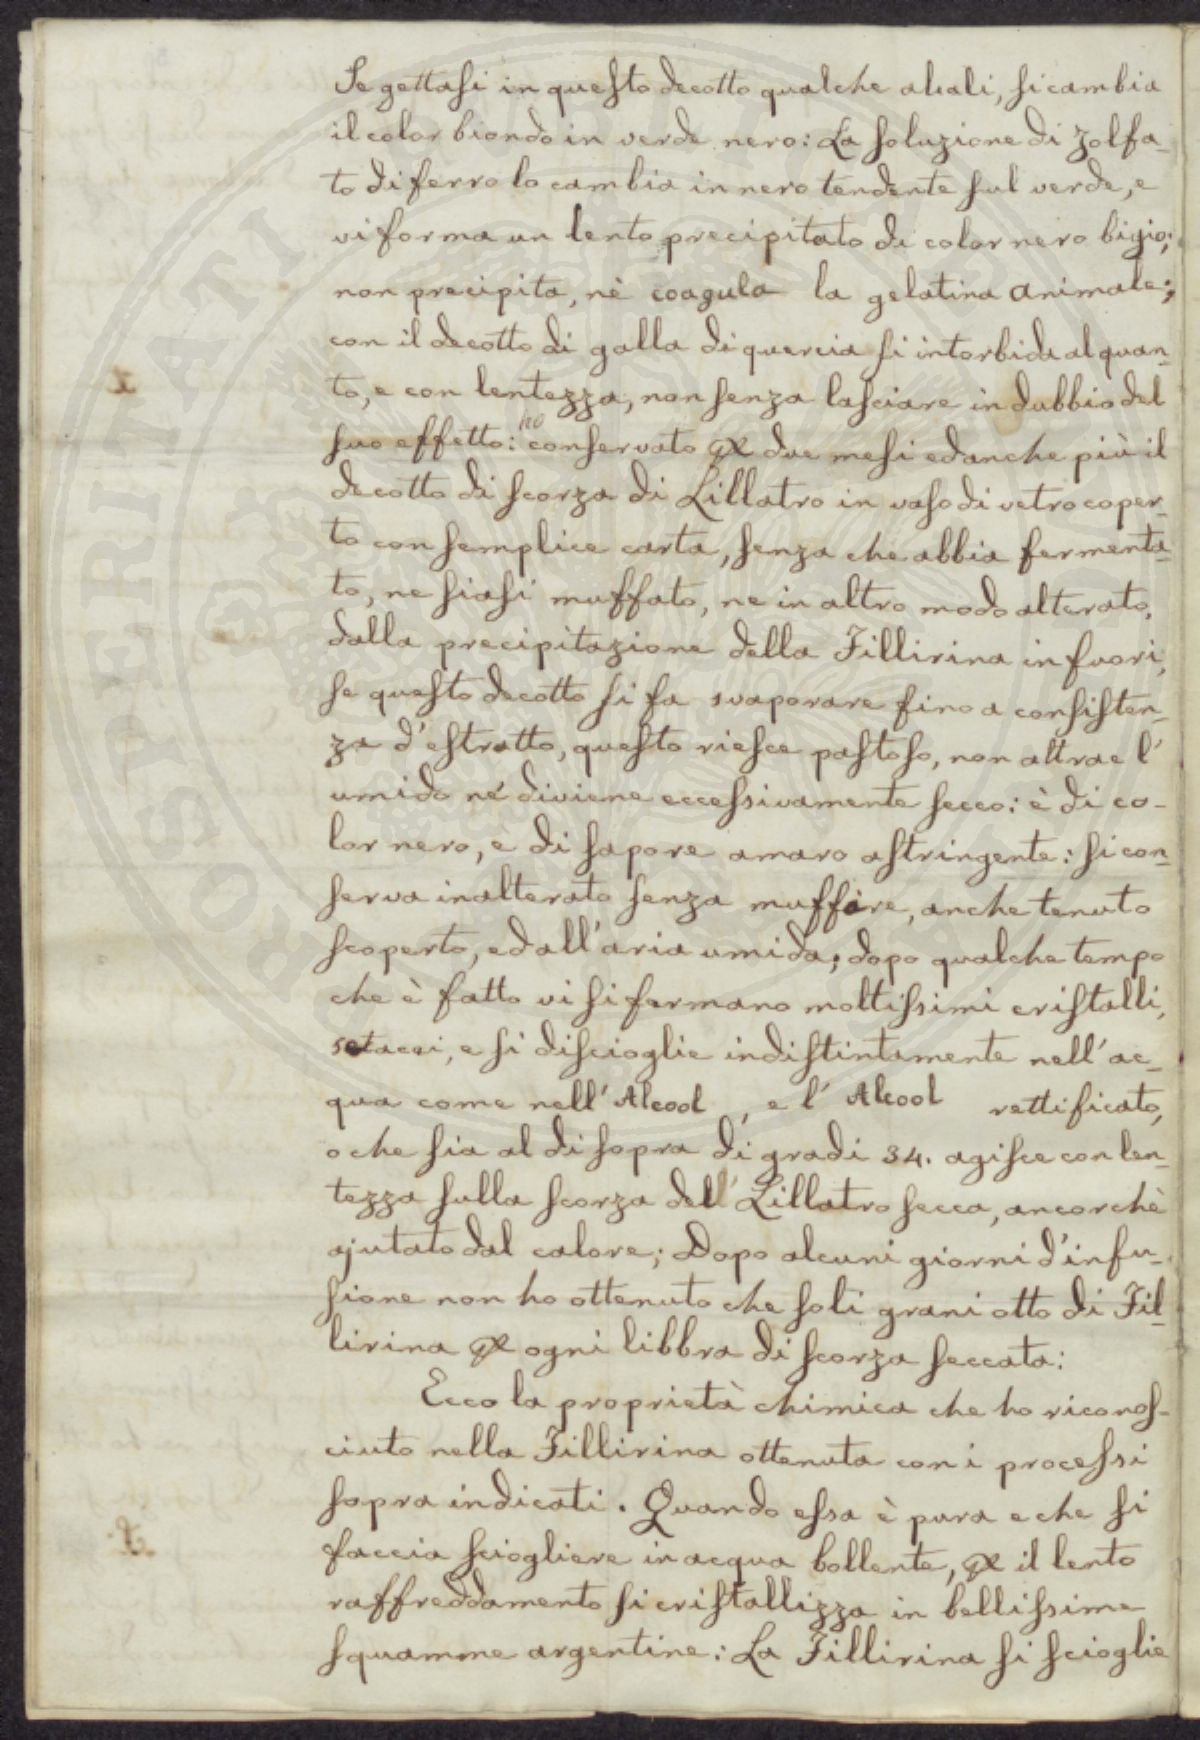 Se gettasi in questo decotto qualche alcali, si cambia
il color biondo in verde nero: La soluzione di Zolfa-
to di ferro lo cambia in nero tendente sul verde, e
vi forma un lento precipitato di color nero bigio;
non precipita, nè coagula la gelatina animale;
con il decotto di galla di quercia si intorbida alquan-
to, e con lentezza, non senza lasciare in dubbio del
suo effetto: ho conservato per due mesi ed anche più il
decotto di scorza di Lillatro in vaso di vetro coper-
to con semplice carta, senza che abbia fermenta-
to, ne siasi muffato, ne in altro modo alterato,
dalla precipitazione della Fillirina in fuori,
se questo decotto si fa svaporare fino a consisten-
za d'estratto, questo riesce pastoso, non attrae l'
umido né diviene eccessivamente secco: è di co-
lor nero, e di sapore amaro astringente: si con-
serva inalterato senza muffire, anche tenuto
scoperto, ed all'aria umida, dopo qualche tempo
che è fatto vi si formano moltissimi cristalli,
setacei, e si discioglie indistintamente nell'ac-
qua come nell'Alcool, e l'Alcool rettificato,
o che sia al di sopra di gradi 34. agisce con len-
tezza sulla scorza dell'Lillatro secca, ancorchè
ajutato dal calore; Dopo alcuni giorni d'infu-
sione non ho ottenuto che soli grani otto di Fil-
lirina per ogni libbra di scorza seccata:
Ecco la proprietà chimica che ho riconos-
ciuto nella Fillirina ottenuta con i processi
sopra indicati. Quando essa è pura e che si
faccia sciogliere in acqua bollente, per il lento
raffreddamento si cristallizza in bellissime
squamme argentine: La Fillirina si scioglie
PROSPERITATI